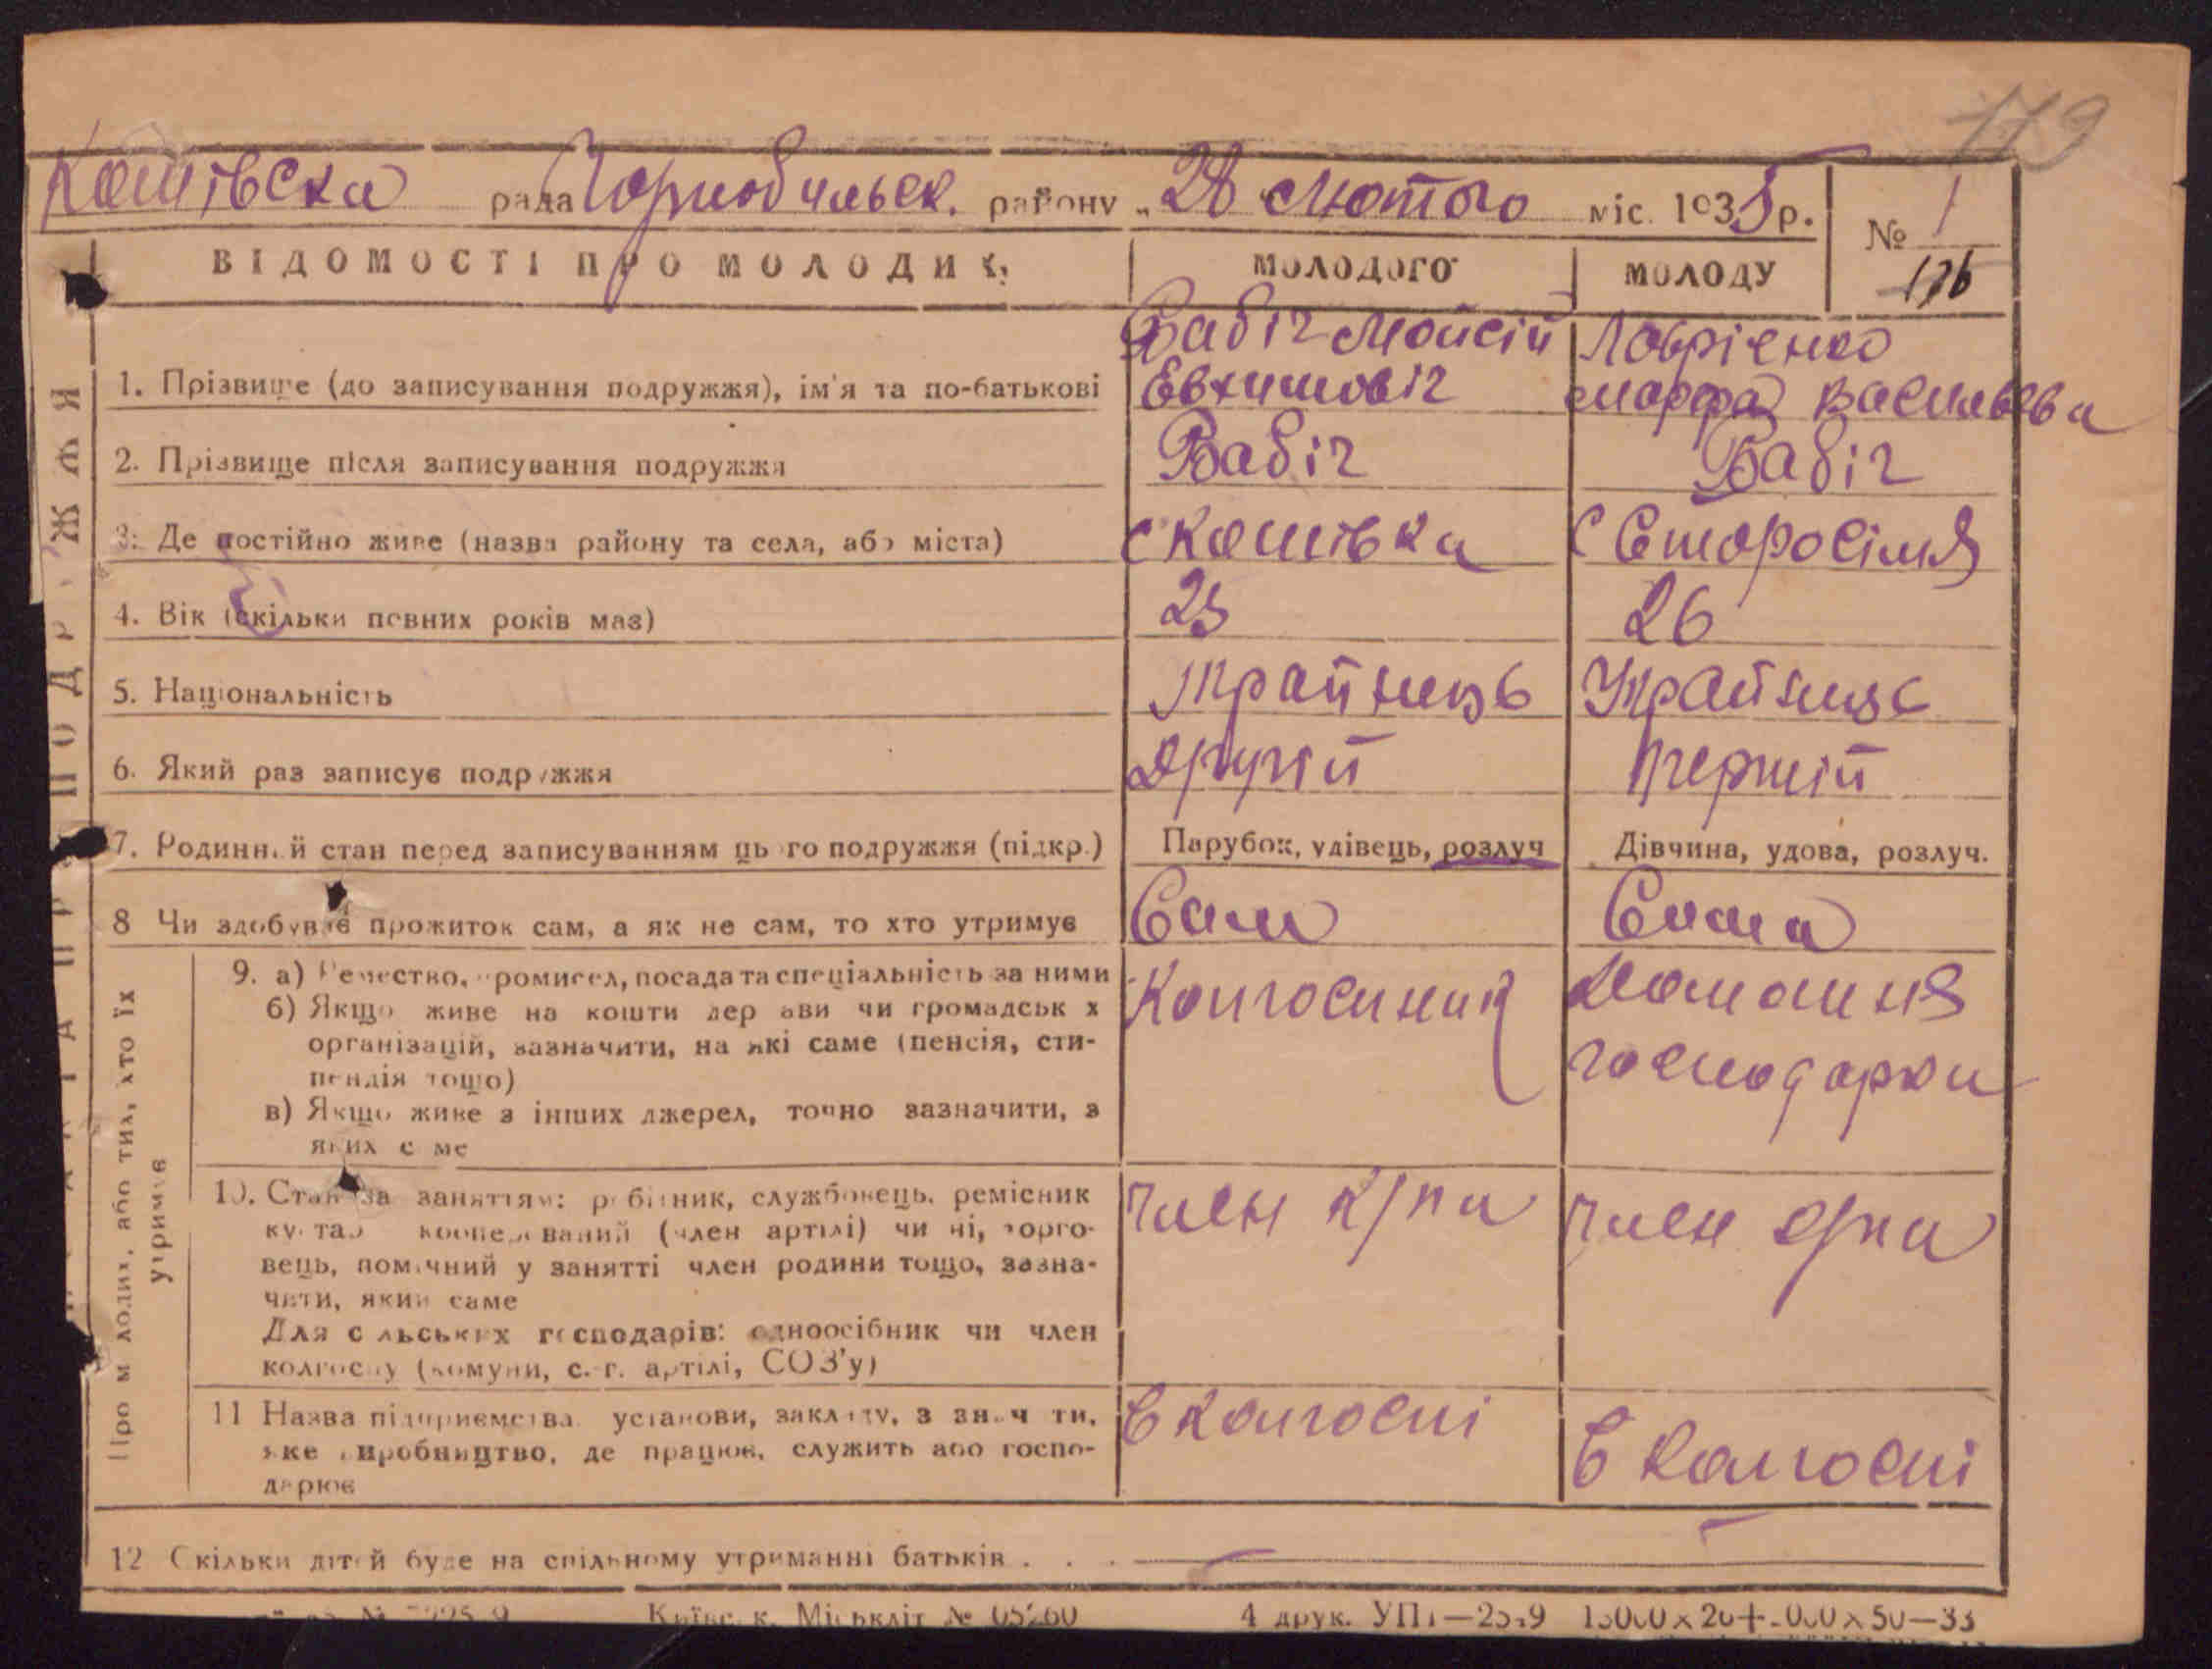 179
Кошівська рада Чорнобильськ. району „28 Лютого міс. 1935 р.
№ 1
176
ВІДОМОСТІ ПРО МОЛОДИХ
МОЛОДОГО
МОЛОДУ
1. Прізвище (до записування подружжя), ім'я та по-батькові
Бабіч Мойсій
Евхимовіч
Лавріенко
Марфа Васильевна
2. Прізвище після записування подружжя
Бабіч
Бабіч
3. Де постійно живе (назва району та села, або міста)
с Кошівка
с Старосілля
4. Вік (скільки повних років має)
25
26
5. Національність
Украйнець
Украйнець
6. Який раз записує подружжя
Другій
Першій
7. Родинний стан перед записуванням цього подружжя (підкр.)
Парубок, удівець, розлуч
Дівчина, удова, розлуч.
8 Чи здобуває прожиток сам, а як не сам, то хто утримує
Сам
Сама
Про молодих, або тих, хто їх
утримує
9. а) Ремество, промисел, посада та спеціальність за ними
б) Якщо живе на кошти держави чи громадських
організацій, зазначити, на які саме (пенсія, сти-
пендія тощо)
в) Якщо живе з інших джерел, точно зазначити, з
яких саме
Колгоспник
Домашня
господарка
10. Стан за заняттям: робітник, службовець, ремісник
кустар кооперований (член артілі) чи ні, торго-
вець, помічний у занятті член родини тощо, зазна-
чити, який саме
Для сільських господарів: одноосібник чи член
колгоспу (комуни, с.-г. артілі, СОЗ'у)
член
член
11 Назва підприємства установи, закладу, зазначити,
яке виробництво, де працює, служить або госпо-
дарює
в колгоспі
в колгоспі
12 Скільки дітей буде на спільному утриманні батьків . . .
Київськ. Міськліт № 05260
4 друк. УПП—25